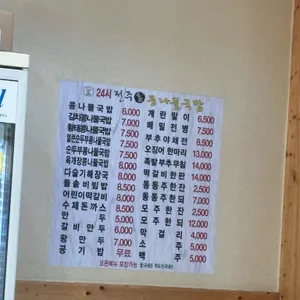 24시 전주 콩나물국밥
콩나물국밥 6,000
김치콩나물국밥 7,000
황태콩나물국밥 7,500
얼큰순두부콩나물국밥 7,500
순두부콩나물국밥 7,500
육개장콩나물국밥 8,500
다슬기해장국 8,000
돌솥비빔밥 8,500
어린이떡갈비 8,000
수제돈까스 8,500
만두
갈비만두 6,000
왕만두 7,000
공기밥 무료
계란말이 6,500
메밀전병 7,500
부추야채전
오징어한마리 13,000
족발부추무침 14,000
떡갈비한판 14,000
동동주한되 7,000
동동주한잔 2,500
모주한되 12,000
모주한잔 2,500
막걸리 4,000
소주 5,000
맥주 5,000
모든메뉴 포장가능